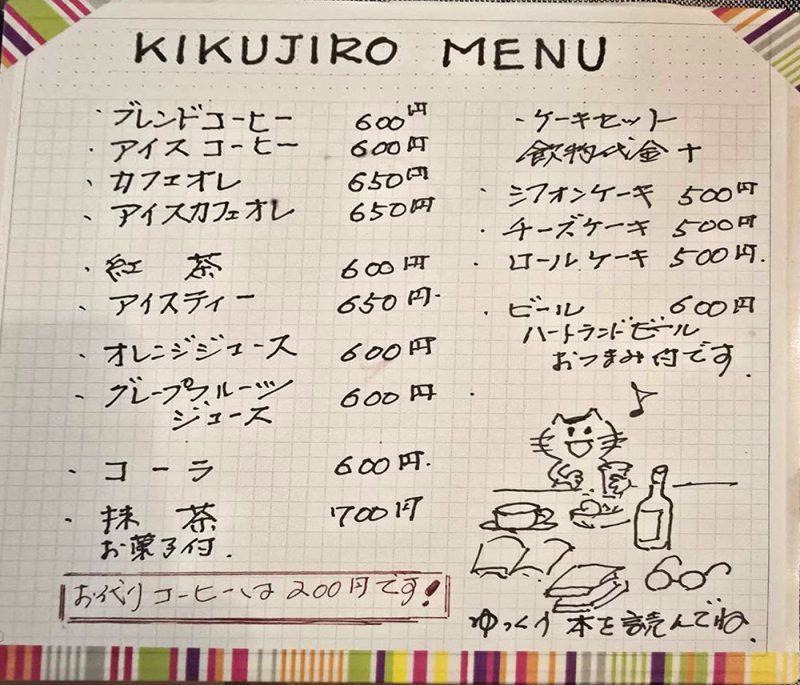 KIKUJIRO MENU
・ブレンドコーヒー 600円
・アイスコーヒー 600円
・カフェオレ 650円
・アイスカフェオレ 650円
・紅 茶 600円
・アイスティー 650円.
・オレンジジュース 600円
・グレープフルーツ
ジュース 600円
・コーラ 600円.
・抹 茶 700円
お菓子付.
お代りコーヒーは200円です!
・ケーキセット
飲物代金+
・シフォンケーキ 500円
・チーズケーキ 500円
・ロールケーキ 500円.
・ビール 600円
ハートランドビール
おつまみ付です.
ゆっくり本を読んでね.